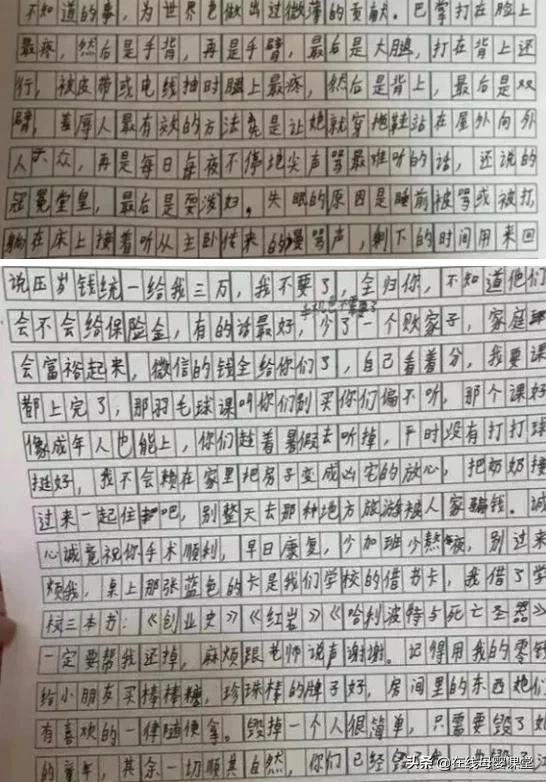 不知道的事，为世界也做出过微薄的贡献。巴掌打在脸上
最疼，然后是手背，再是手臂，最后是大腿，打在背上还
行，被皮带或电线抽时腿上最疼，然后是背上，最后是双
臂，羞辱人最有效的方法是让她就穿拖鞋站在屋外向外
人示众，再是每日每夜不停地尖声骂最难听的话，还说的
冠冕堂皇，最后是耍泼妇。失眠的原因是睡前被骂或被打
躺在床上接着听从主卧传来的谩骂声，剩下的时间用来回
说压岁钱统一给我三万，我不要了，全归你，不知道他们
手机也不需要了
会不会给保险金，有的话最好，少了一个败家子，家庭
会富裕起来，微信的钱全给你们了，自己看着分，我要课
都上完了，那羽毛球课叫你们别买你们偏不听，那个课好
像成年人也能上，你们趁着暑假去听掉，平时没有打打球
挺好，我不会赖在家里把房子变成凶宅的放心，把奶奶接
过来一起住吧，别整天去那种地方旅游被人家骗钱。诚
心诚意祝你手术顺利，早日康复，少加班少熬夜，别过来
烦我，桌上那张蓝色的卡是我们学校的借书卡，我借了学
校三本书：《创业史》《红岩》《哈利波特与死亡圣器》
一定要帮我还掉，麻烦跟老师说声谢谢。记得用我的零钱
给小朋友买棒棒糖，珍珠棒的牌子好，房间里的东西她们
有喜欢的一律随便拿。毁掉一个人很简单，只需要毁了她
的童年，其余一切顺其自然，你们已经毁了我
头条 @在线母婴课堂